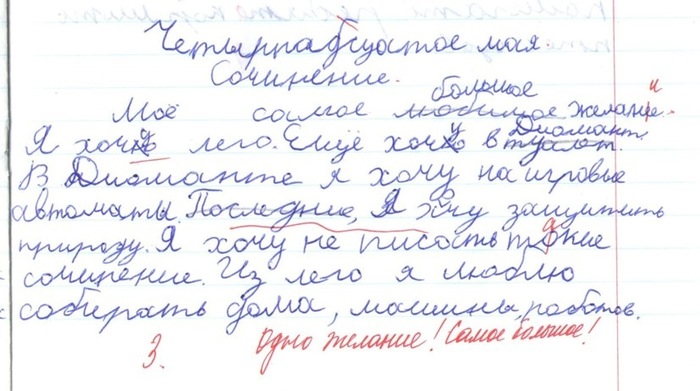 Четырнадцатое мая.
Сочинение.
большое
Моё самое любимое желание. и
Я хочу лего. Ещё хочу в туалет. Диамант.
В Диоманте я хочу на игровые
автоматы. Последние, Я хочу защитить
природу. Я хочу не писать такие
сочинение. Из лего я люблю
собирать дома, машины, роботов.
3. Одно желание! Самое большое!